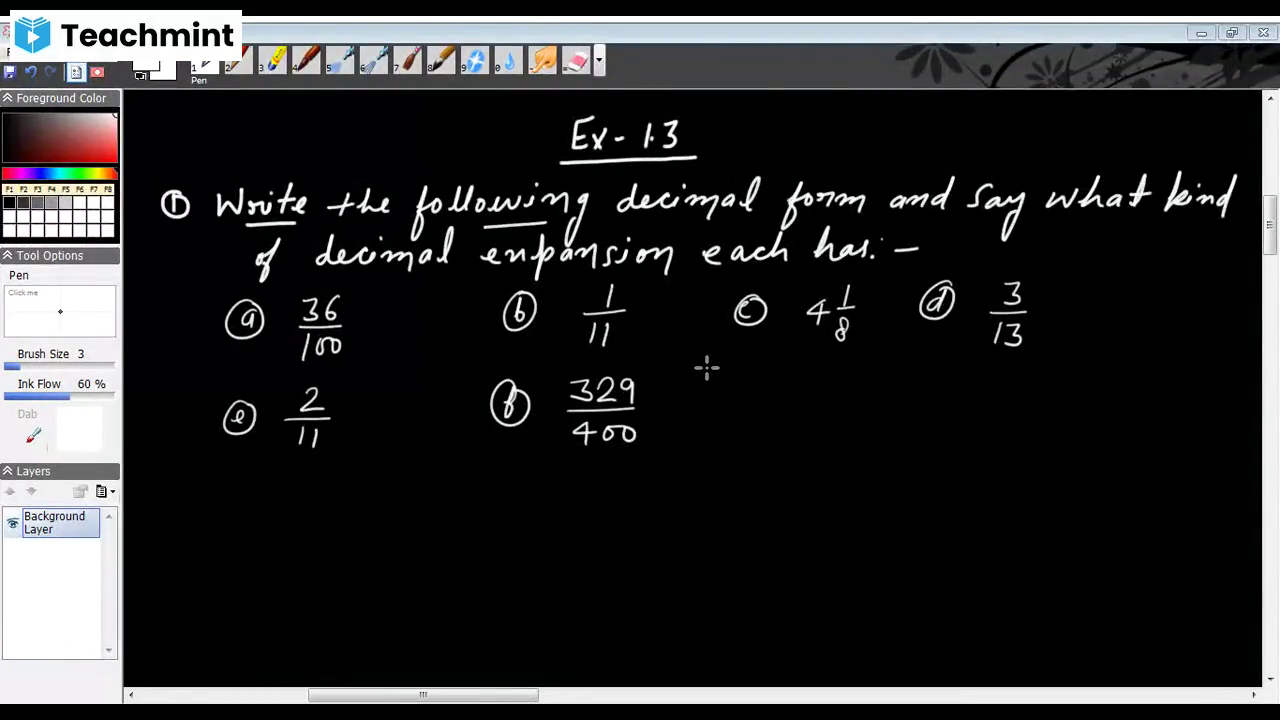 Teachmint
Pen
Foreground Color
F1 F2 F3 F4 F5 F6 F7 F8
Tool Options
Pen
Click me
Brush Size 3
Ink Flow 60 %
Dab
Layers
Background
Layer
Ex - 1.3
① Write the following decimal form and say what kind
of decimal enpansion each has : -
ⓐ 36/100 ⓑ 1/11 ⓒ 4 1/8 ⓓ 3/13
ⓔ 2/11 ⓕ 329/400